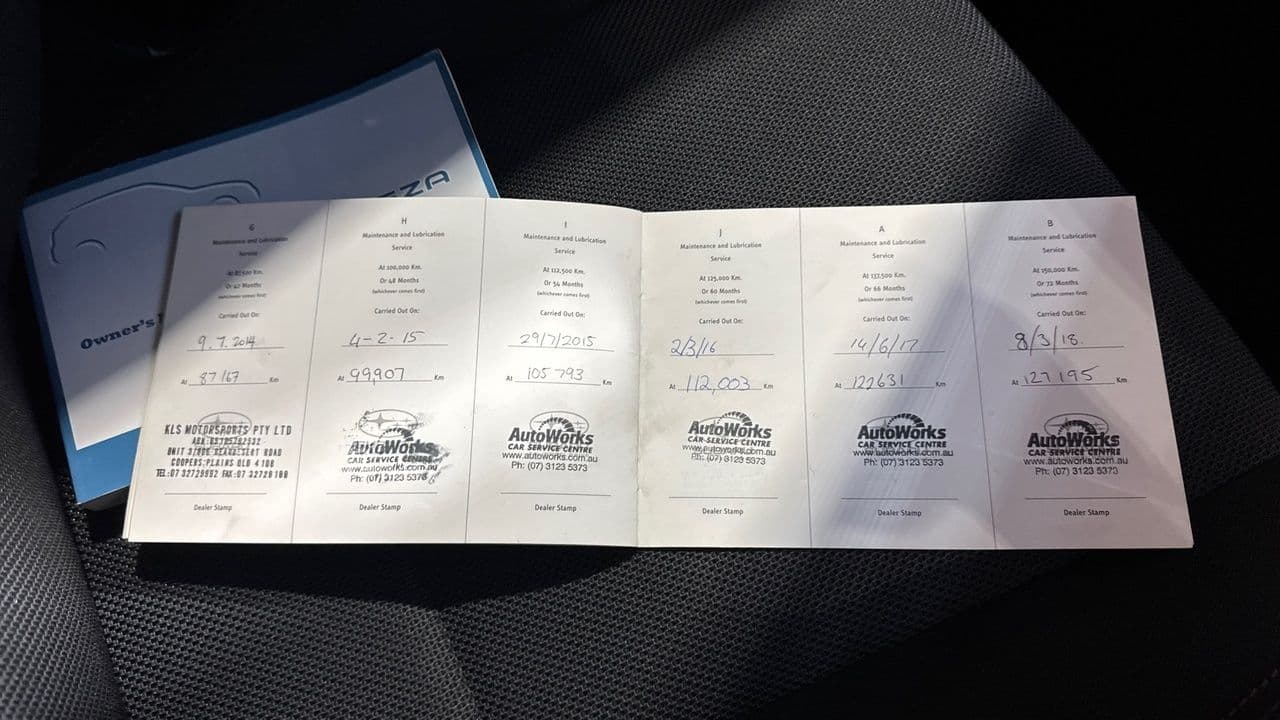 ZA
Owner's
G
Maintenance and Lubrication
Service
At 87,500 Km.
Or 42 Months
(whichever comes first)
Carried Out On:
9.7.2014
At 87167 Km
KLS MOTORSPORTS PTY LTD
COOPERS PLAINS QLD 4108
Dealer Stamp
H
Maintenance and Lubrication
Service
At 100,000 Km.
Or 48 Months
(whichever comes first)
Carried Out On:
4-2-15
At 99,907 Km
AutoWorks
CAR SERVICE CENTRE
www.autoworks.com.au
Ph: (07) 3123 5373
Dealer Stamp
I
Maintenance and Lubrication
Service
At 112,500 Km.
Or 54 Months
(whichever comes first)
Carried Out On:
29/7/2015
At 105793 Km
AutoWorks
CAR SERVICE CENTRE
www.autoworks.com.au
Ph: (07) 3123 5373
Dealer Stamp
J
Maintenance and Lubrication
Service
At 125,000 Km.
Or 60 Months
(whichever comes first)
Carried Out On:
2/3/16
At 112,003 Km
AutoWorks
CAR SERVICE CENTRE
www.autoworks.com.au
Ph: (07) 3123 5373
Dealer Stamp
A
Maintenance and Lubrication
Service
At 137,500 Km.
Or 66 Months
(whichever comes first)
Carried Out On:
14/6/17
At 122631 Km
AutoWorks
CAR SERVICE CENTRE
www.autoworks.com.au
Ph: (07) 3123 5373
Dealer Stamp
B
Maintenance and Lubrication
Service
At 150,000 Km.
Or 72 Months
(whichever comes first)
Carried Out On:
8/3/18.
At 127195 Km
AutoWorks
CAR SERVICE CENTRE
www.autoworks.com.au
Ph: (07) 3123 5373
Dealer Stamp